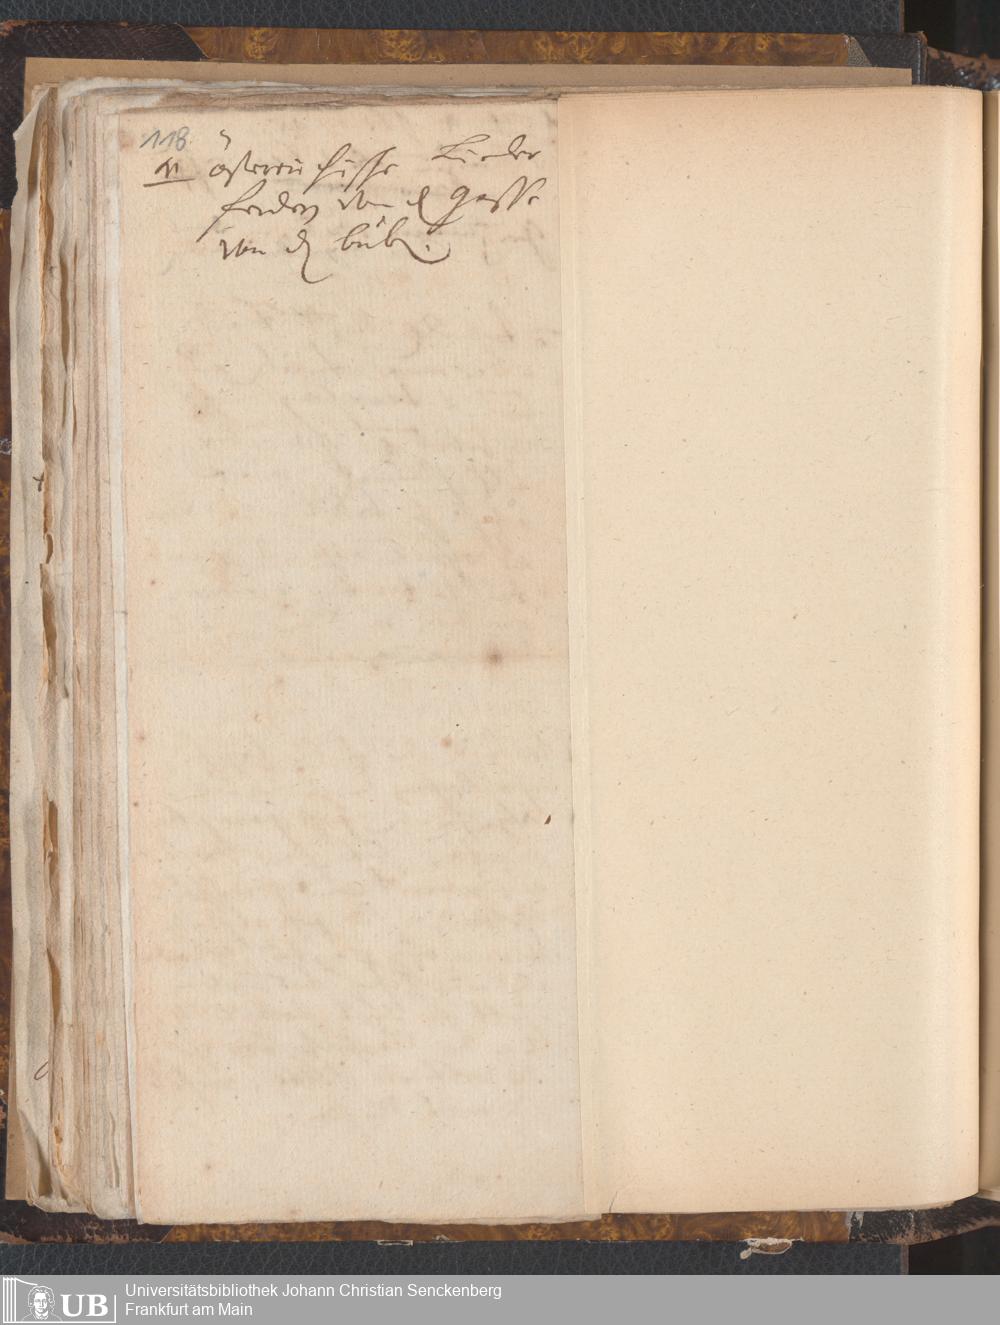 118
österreichische Lieder
von d gasse
von d büb.
UB
Universitätsbibliothek Johann Christian Senckenberg
Frankfurt am Main